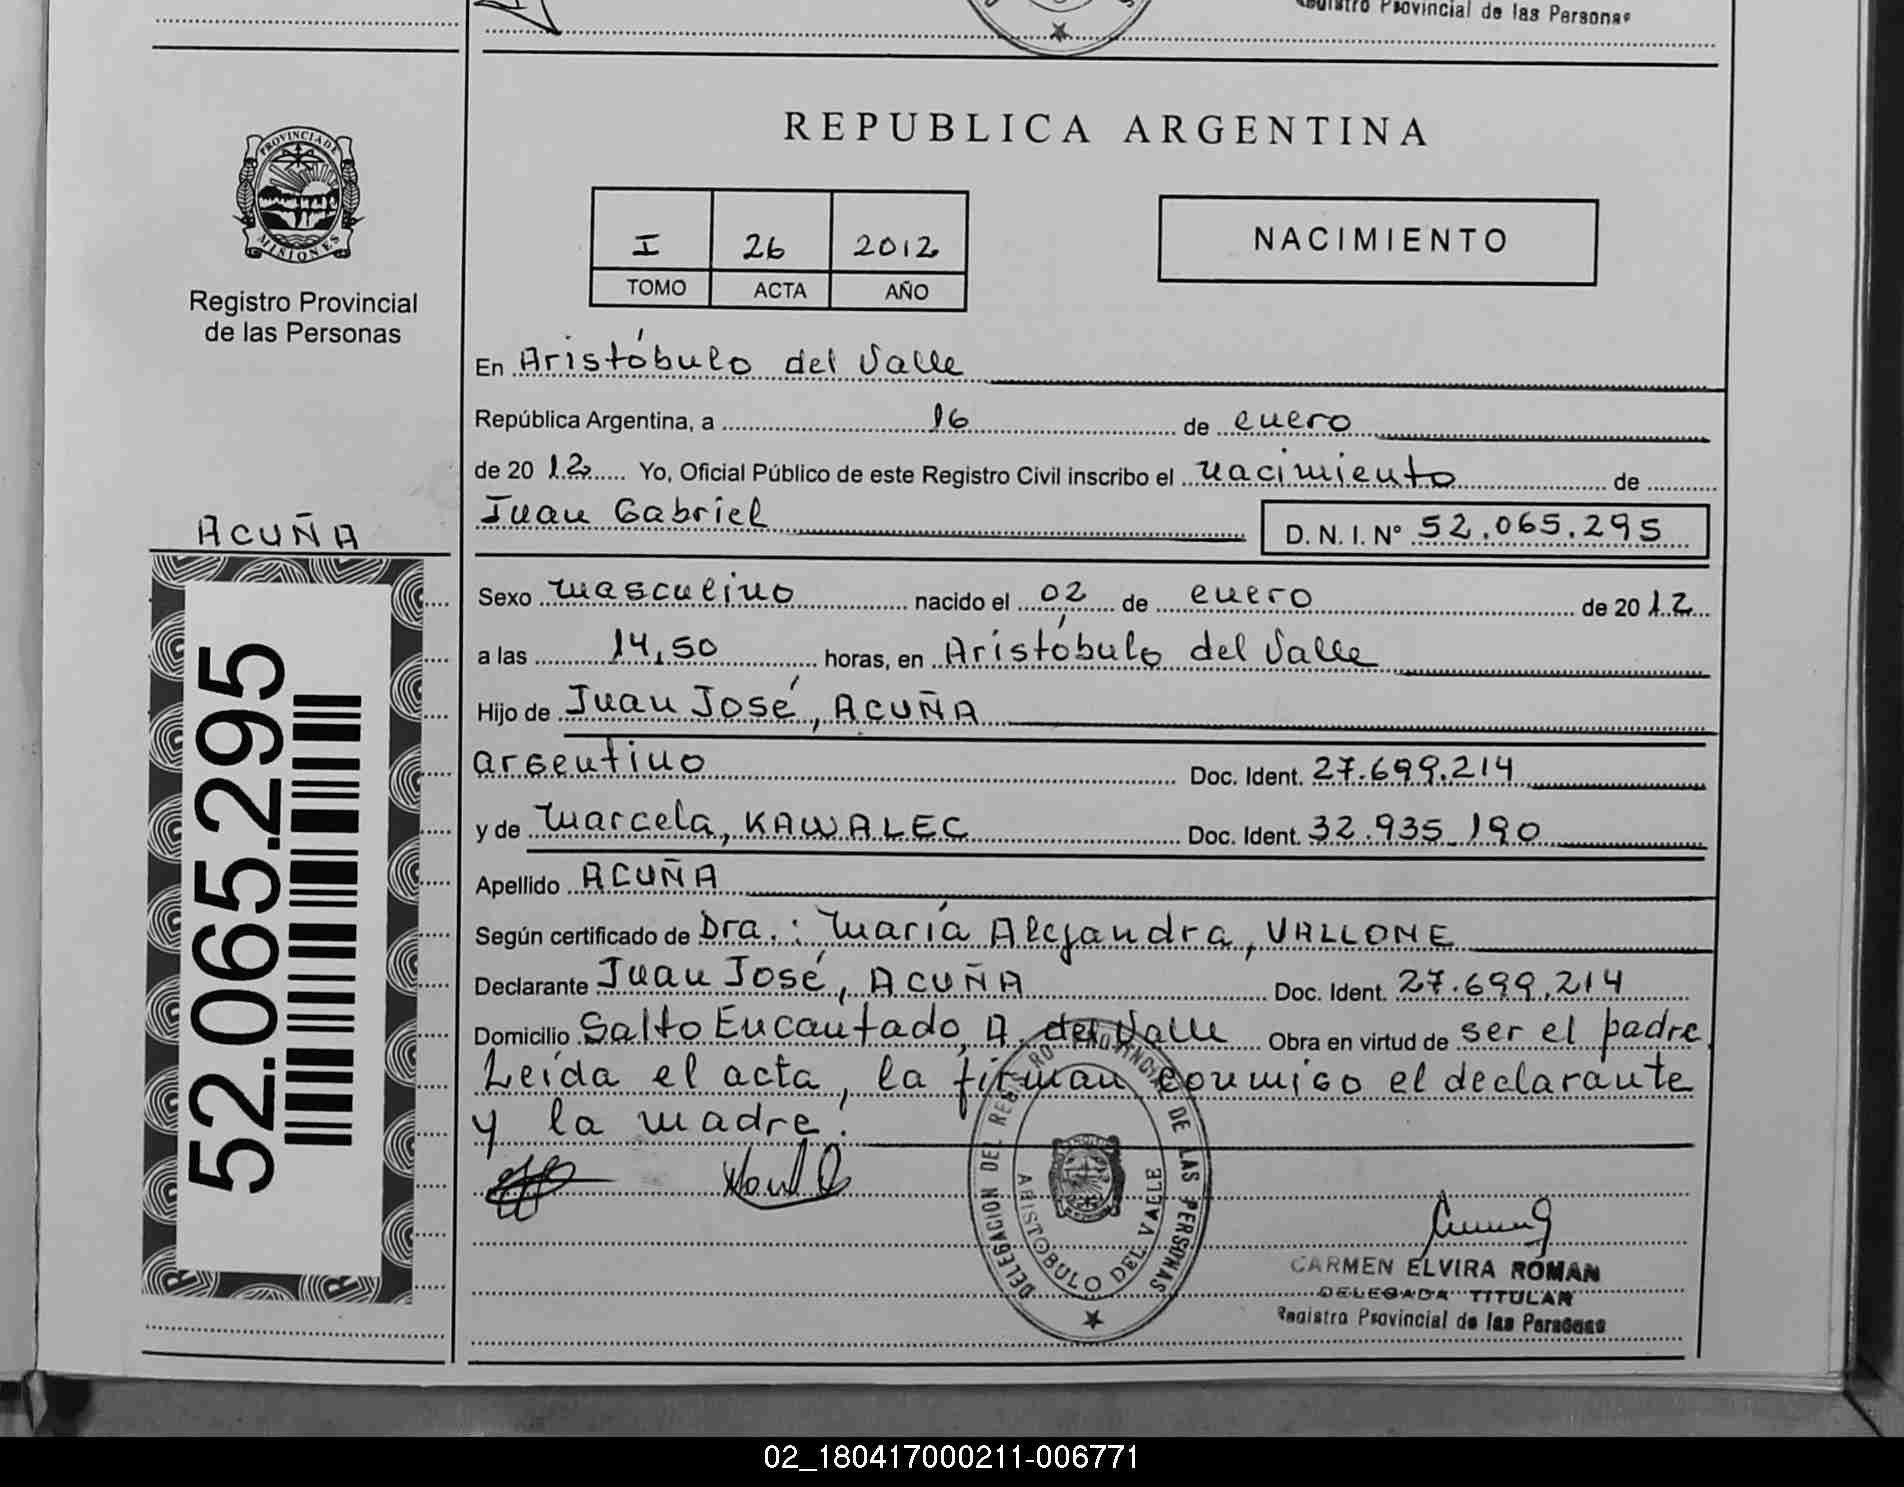 Registro Provincial de las Personas
REPUBLICA ARGENTINA
PROVINCIA DE
MISIONES
Registro Provincial
de las Personas
I 26 2012
TOMO ACTA AÑO
NACIMIENTO
En Aristóbulo del Valle
República Argentina, a 16 de enero
de 2012 Yo, Oficial Público de este Registro Civil inscribo el nacimiento de
Juan Gabriel D. N. I. Nº 52.065.295
ACUÑA
52.065.295
Sexo masculino nacido el 02 de enero de 2012
a las 14,50 horas, en Aristóbulo del Valle
Hijo de Juan José, ACUÑA
argentino Doc. Ident. 27.699.214
y de Marcela, KAWALEC Doc. Ident. 32.935.190
Apellido ACUÑA
Según certificado de Dra.: María Alejandra, VALLONE
Declarante Juan José, ACUÑA Doc. Ident. 27.699.214
Domicilio Salto Encantado, A. del Valle Obra en virtud de ser el padre.
Leída el acta, la firman conmigo el declarante
y la madre.
DELEGACION DEL REGISTRO PROVINCIAL DE LAS PERSONAS
ARISTOBULO DEL VALLE
CARMEN ELVIRA ROMAN
DELEGADA TITULAR
Registro Provincial de las Personas
02_180417000211-006771